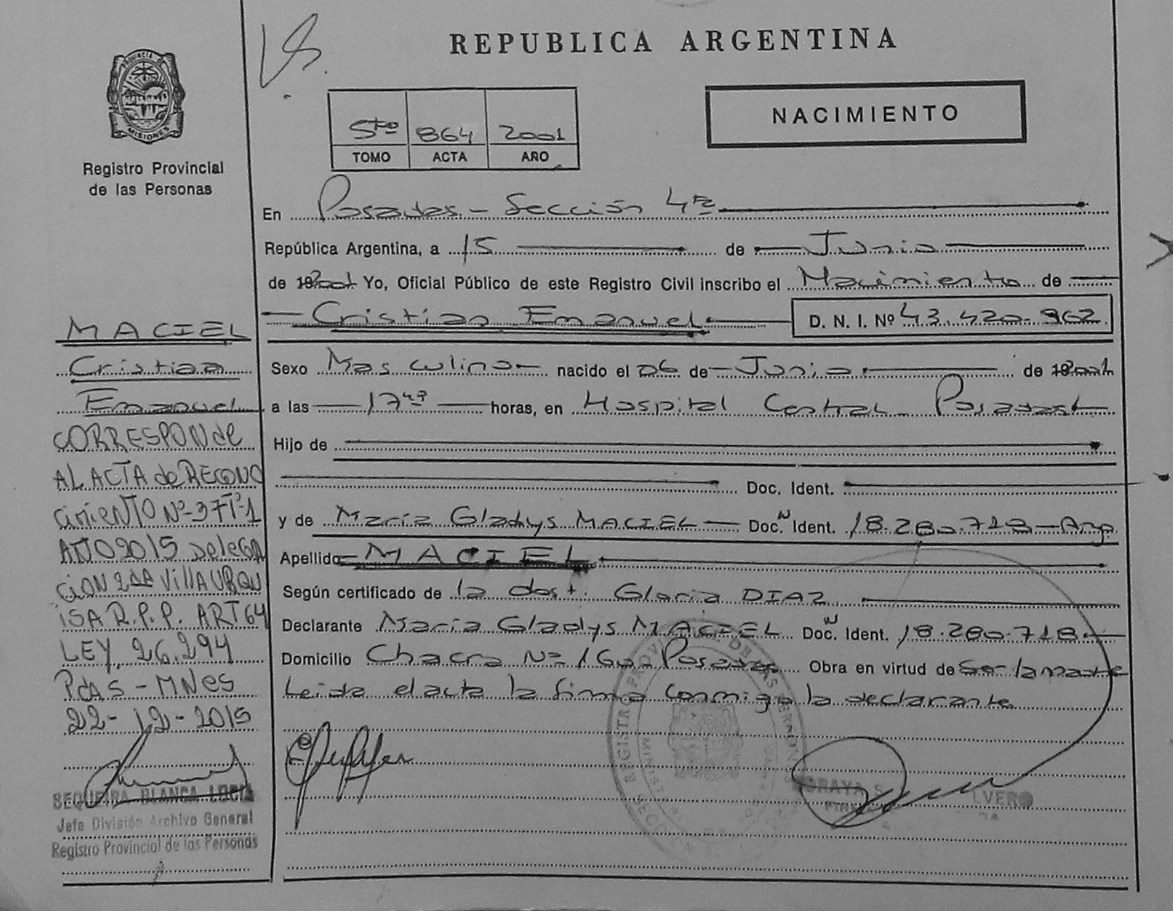 REPUBLICA ARGENTINA
PROVINCIA DE MISIONES
Registro Provincial
de las Personas
5to 864 2001
TOMO ACTA AÑO
NACIMIENTO
En Posadas - Sección 4ta
República Argentina, a 15 de Junio
de 2001 Yo, Oficial Público de este Registro Civil inscribo el Nacimiento de
Cristian Emanuel D. N. I. Nº 43.420.962
Sexo Masculino nacido el 06 de Junio de 2001
a las 17 horas, en Hospital Central Posadas
Hijo de
Doc. Ident.
y de Maria Gladys MACIEL Doc. N Ident. 18.280.718 - Arg.
Apellido MACIEL
Según certificado de la doct. Gloria DIAZ
Declarante Maria Gladys MACIEL Doc. N Ident. 18.280.718
Domicilio Chacra Nº 160 - Posadas Obra en virtud de Ser la madre
Leida el acta la firma conmigo la declarante
MACIEL
Cristian
Emanuel
CORRESPONde
AL ACTA de RECONO
cimiENTO Nº-37T-1
AÑO 2015 DelegA
ciON 2da VillA URQU
iSA R.P.P. ART 64
LEY, 26.294
PdAS - MNes
22-12-2015
SEQUEIRA BLANCA LUCIA
Jefa División Archivo General
Registro Provincial de las Personas